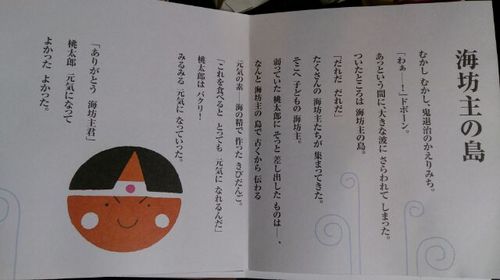 海坊主の島
むかし むかし、鬼退治のかえりみち。
「わぁー！」ドボーン。
あっという間に、大きな波に さらわれて しまった。
ついたところは 海坊主の島。
「だれだ だれだ」
たくさんの 海坊主たちが 集まってきた。
そこへ 子どもの 海坊主。
弱っていた 桃太郎に そっと 差し出した ものは―、
なんと 海坊主の 島で 古くから 伝わる
元気の素 海の精で 作った きびだんご。
「これを食べると とっても 元気に なれるんだ」
桃太郎は パクリ！
みるみる 元気に なっていった。
「ありがとう 海坊主君」
桃太郎 元気になって
よかった よかった。